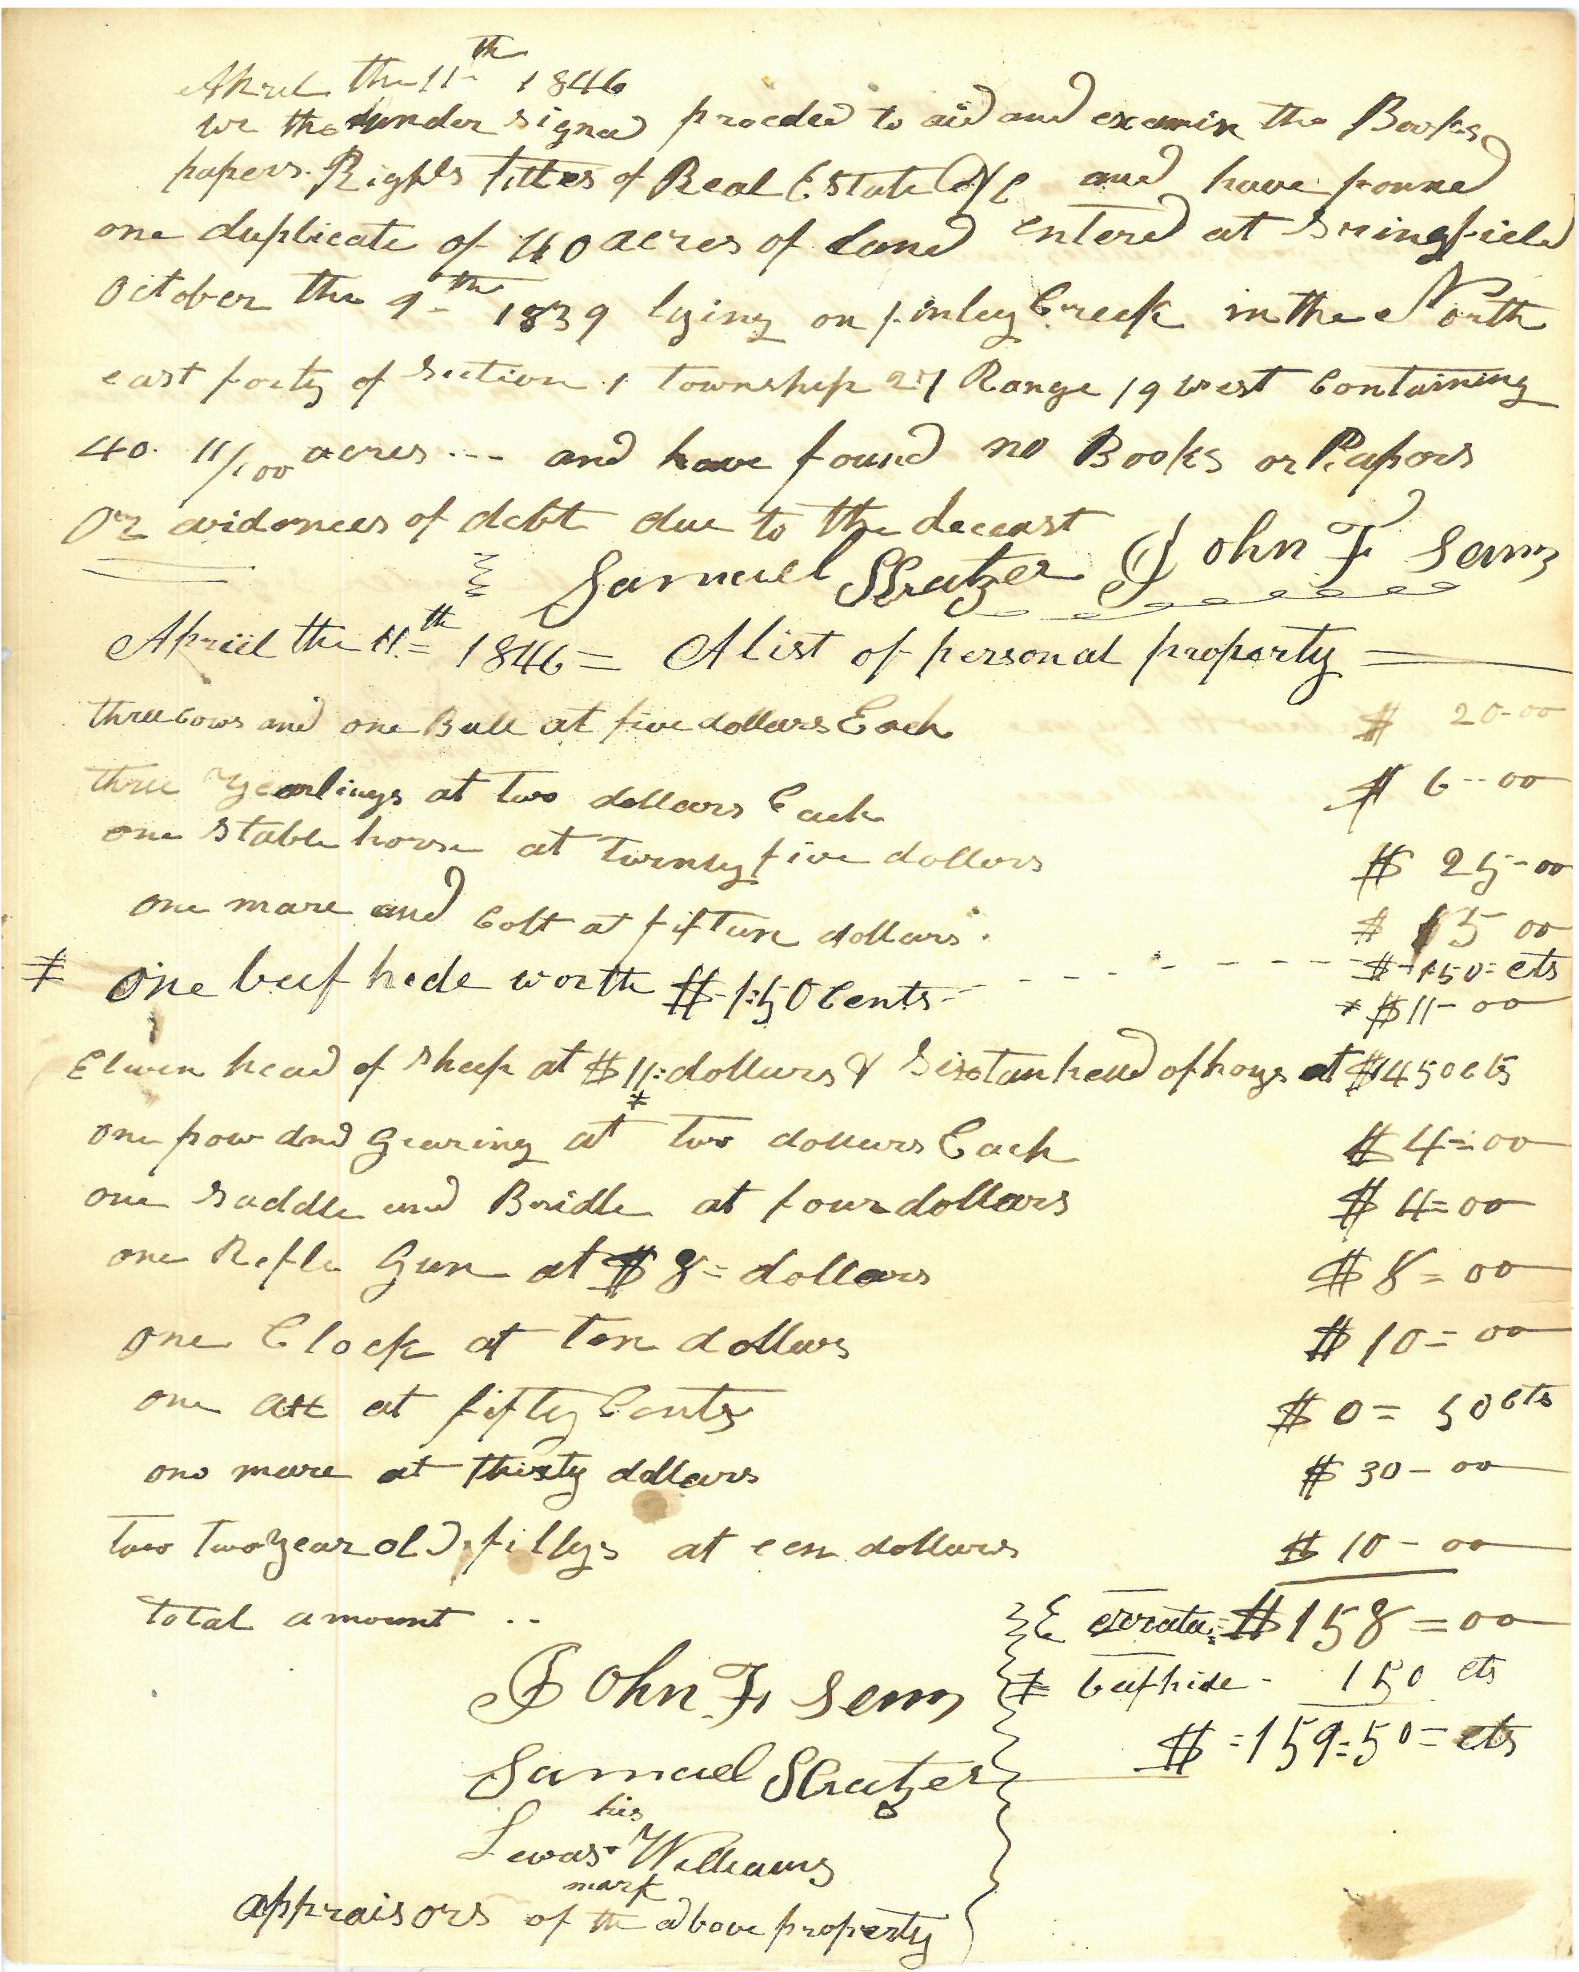 Apriel the 11th 1846
we the under signed proceded to aid and examin the Books
papers. Rights tittes of Real Estate &c and have founed
one duplicate of 40 acres of land entered at Springfield
October the 9th 1839 lying on finley Creek in the North
east forty of Section 1 township 27 Range 19 west Containing
40. 11/100 acres --- and have found no Books or Papors
Or avidences of debt due to the deceast
Samuel Sratzer John F Senn
Apriel the 11th 1846 = A list of personal property
three Cows and one Bull at five dollars Each $ 20-00
three yearlings at two dollars Each $ 6--00
one stable horse at twenty five dollars $ 25-00
one mare and Colt at fifteen dollars. $ 15 00
# one beef hide worth $-1:50 Cents- - - - - - - $-1.50=cts
* $11-00
Eleven head of sheep at $11:dollars & Sixteen head of hogs at $1450cts
*
one plow and Gearing at two dollars Each $ 4=00
one saddle and Bridle at four dollars $ 4=00
one Refle Gun at $ 8= dollars $ 8=00
one Clock at ten dollars $ 10=00
one ax at fifty Cents $ 0= 50cts
one mare at thirty dollars $ 30-00
two two year old fillys at een dollars $ 10-00
total amount -- errata: $158=00
John F. Senn # beefhide- 150 cts
$=159=50=cts
Samuel Sratzer
his
Lewas Williams
mark
appraisors of the above property